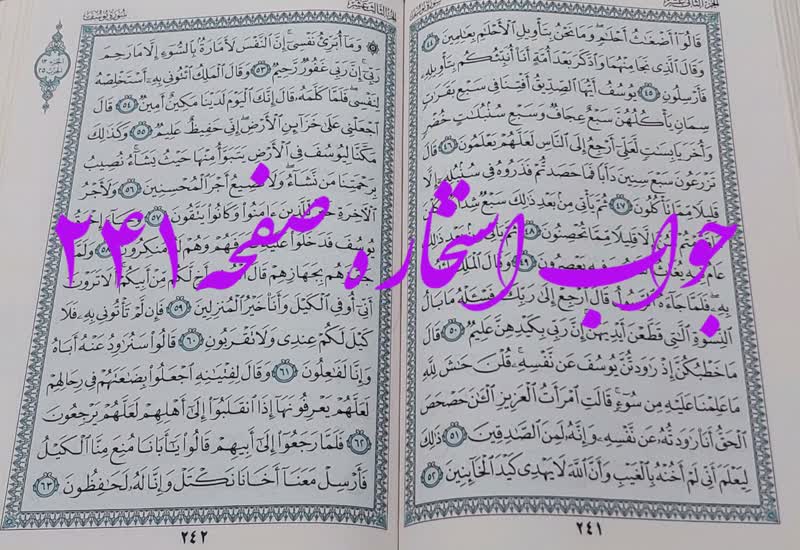 الجزء الثاني عشر
سورة يوسف
قَالُوٓا۟ أَضْغَٰثُ أَحْلَٰمٍ وَمَا نَحْنُ بِتَأْوِيلِ ٱلْأَحْلَٰمِ بِعَٰلِمِينَ ٤٤
وَقَالَ ٱلَّذِى نَجَا مِنْهُمَا وَٱدَّكَرَ بَعْدَ أُمَّةٍ أَنَا۠ أُنَبِّئُكُم بِتَأْوِيلِهِۦ
فَأَرْسِلُونِ ٤٥ يُوسُفُ أَيُّهَا ٱلصِّدِّيقُ أَفْتِنَا فِى سَبْعِ بَقَرَٰتٍ
سِمَانٍ يَأْكُلُهُنَّ سَبْعٌ عِجَافٌ وَسَبْعِ سُنۢبُلَٰتٍ خُضْرٍ
وَأُخَرَ يَابِسَٰتٍ لَّعَلِّىٓ أَرْجِعُ إِلَى ٱلنَّاسِ لَعَلَّهُمْ يَعْلَمُونَ ٤٦ قَالَ
تَزْرَعُونَ سَبْعَ سِنِينَ دَأَبًا فَمَا حَصَدتُّمْ فَذَرُوهُ فِى سُنۢبُلِهِۦٓ إِلَّا
قَلِيلًا مِّمَّا تَأْكُلُونَ ٤٧ ثُمَّ يَأْتِى مِنۢ بَعْدِ ذَٰلِكَ سَبْعٌ شِدَادٌ
إِلَّا قَلِيلًا مِّمَّا تُحْصِنُونَ ٤٨
عَامٌ فِيهِ يُغَاثُ وَفِيهِ يَعْصِرُونَ ٤٩ وَقَالَ ٱلْمَلِكُ
بِهِۦ فَلَمَّا جَآءَهُ ٱلرَّسُولُ قَالَ ٱرْجِعْ إِلَىٰ رَبِّكَ فَسْـَٔلْهُ مَا بَالُ
ٱلنِّسْوَةِ ٱلَّٰتِى قَطَّعْنَ أَيْدِيَهُنَّ إِنَّ رَبِّى بِكَيْدِهِنَّ عَلِيمٌ ٥٠ قَالَ
مَا خَطْبُكُنَّ إِذْ رَٰوَدتُّنَّ يُوسُفَ عَن نَّفْسِهِۦ قُلْنَ حَٰشَ لِلَّهِ
مَا عَلِمْنَا عَلَيْهِ مِن سُوٓءٍ قَالَتِ ٱمْرَأَتُ ٱلْعَزِيزِ ٱلْـَٰٔنَ حَصْحَصَ
ٱلْحَقُّ أَنَا۠ رَٰوَدتُّهُۥ عَن نَّفْسِهِۦ وَإِنَّهُۥ لَمِنَ ٱلصَّٰدِقِينَ ٥١ ذَٰلِكَ
لِيَعْلَمَ أَنِّى لَمْ أَخُنْهُ بِٱلْغَيْبِ وَأَنَّ ٱللَّهَ لَا يَهْدِى كَيْدَ ٱلْخَآئِنِينَ ٥٢
٢٤١
الجزء الثالث عشر
سورة يوسف
وَمَآ أُبَرِّئُ نَفْسِىٓ إِنَّ ٱلنَّفْسَ لَأَمَّارَةٌۢ بِٱلسُّوٓءِ إِلَّا مَا رَحِمَ
رَبِّىٓ إِنَّ رَبِّى غَفُورٌ رَّحِيمٌ ٥٣ وَقَالَ ٱلْمَلِكُ ٱئْتُونِى بِهِۦٓ أَسْتَخْلِصْهُ
لِنَفْسِى فَلَمَّا كَلَّمَهُۥ قَالَ إِنَّكَ ٱلْيَوْمَ لَدَيْنَا مَكِينٌ أَمِينٌ ٥٤ قَالَ
ٱجْعَلْنِى عَلَىٰ خَزَآئِنِ ٱلْأَرْضِ إِنِّى حَفِيظٌ عَلِيمٌ ٥٥ وَكَذَٰلِكَ
مَكَّنَّا لِيُوسُفَ فِى ٱلْأَرْضِ يَتَبَوَّأُ مِنْهَا حَيْثُ يَشَآءُ نُصِيبُ
بِرَحْمَتِنَا مَن نَّشَآءُ وَلَا نُضِيعُ أَجْرَ ٱلْمُحْسِنِينَ ٥٦ وَلَأَجْرُ
ٱلْءَاخِرَةِ خَيْرٌ لِّلَّذِينَ ءَامَنُوا۟ وَكَانُوا۟ يَتَّقُونَ ٥٧ وَجَآءَ إِخْوَةُ
يُوسُفَ فَدَخَلُوا۟ عَلَيْهِ فَعَرَفَهُمْ وَهُمْ لَهُۥ مُنكِرُونَ ٥٨ وَلَمَّا
جَهَّزَهُم بِجَهَازِهِمْ قَالَ ٱئْتُونِى بِأَخٍ لَّكُم مِّنْ أَبِيكُمْ أَلَا تَرَوْنَ
أَنِّىٓ أُوفِى ٱلْكَيْلَ وَأَنَا۠ خَيْرُ ٱلْمُنزِلِينَ ٥٩ فَإِن لَّمْ تَأْتُونِى بِهِۦ فَلَا
كَيْلَ لَكُمْ عِندِى وَلَا تَقْرَبُونِ ٦٠ قَالُوا۟ سَنُرَٰوِدُ عَنْهُ أَبَاهُ
وَإِنَّا لَفَٰعِلُونَ ٦١ وَقَالَ لِفِتْيَٰنِهِ ٱجْعَلُوا۟ بِضَٰعَتَهُمْ فِى رِحَالِهِمْ
لَعَلَّهُمْ يَعْرِفُونَهَآ إِذَا ٱنقَلَبُوٓا۟ إِلَىٰٓ أَهْلِهِمْ لَعَلَّهُمْ يَرْجِعُونَ
٦٢ فَلَمَّا رَجَعُوٓا۟ إِلَىٰٓ أَبِيهِمْ قَالُوا۟ يَٰٓأَبَانَا مُنِعَ مِنَّا ٱلْكَيْلُ
فَأَرْسِلْ مَعَنَآ أَخَانَا نَكْتَلْ وَإِنَّا لَهُۥ لَحَٰفِظُونَ ٦٣
٢٤٢
جواب استخاره صفحه ۲۴۱